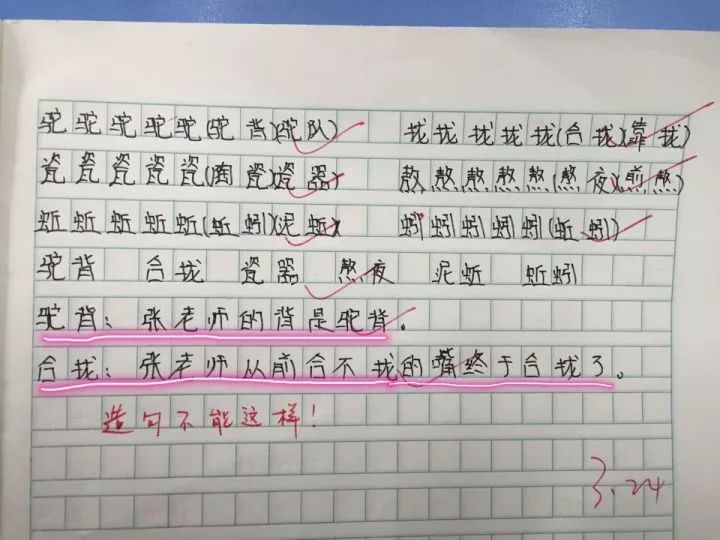 驼驼驼驼驼(驼背)(驼队) 拢拢拢拢拢(合拢)(靠拢)
瓷瓷瓷瓷瓷(陶瓷)(瓷器) 熬熬熬熬熬(熬夜)(煎熬)
蚯蚯蚯蚯蚯(蚯蚓)(泥蚯) 蚓蚓蚓蚓蚓(蚯蚓)
驼背 合拢 瓷器 熬夜 泥蚯 蚯蚓
驼背：张老师的背是驼背。
合拢：张老师从前合不拢的嘴终于合拢了。
造句不能这样！
3.24